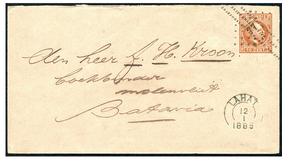 den heer J. H. Kroon
boekbinder
molenvliet
Batavia
LAHAT
12
1
1889